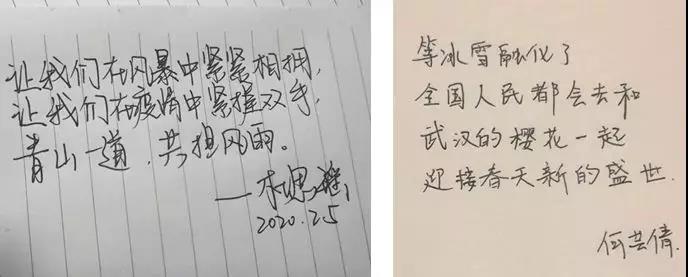 让我们在风暴中紧紧相拥，
让我们在疫情中紧握双手，
青山一道，共担风雨。
——木思
2020.2.5
等冰雪融化了
全国人民都会去和
武汉的樱花一起
迎接春天新的盛世.
何芸倩.